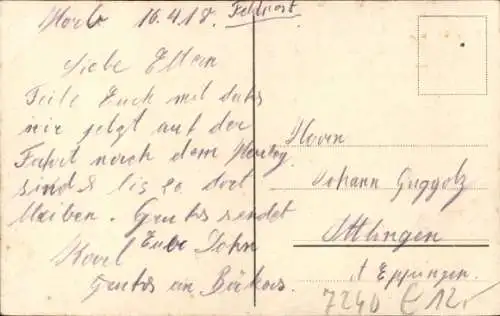 Horb 16.4.18. Feldpost
Liebe Eltern
Teile Euch mit dass
wir jetzt auf der
Fahrt nach dem
sind & bis
bleiben. Gruss sendet
Euer Sohn
Karl
Gruss an
Herrn
Johann Guggolz
Ittlingen
A Eppingen.
7240 € 12,-